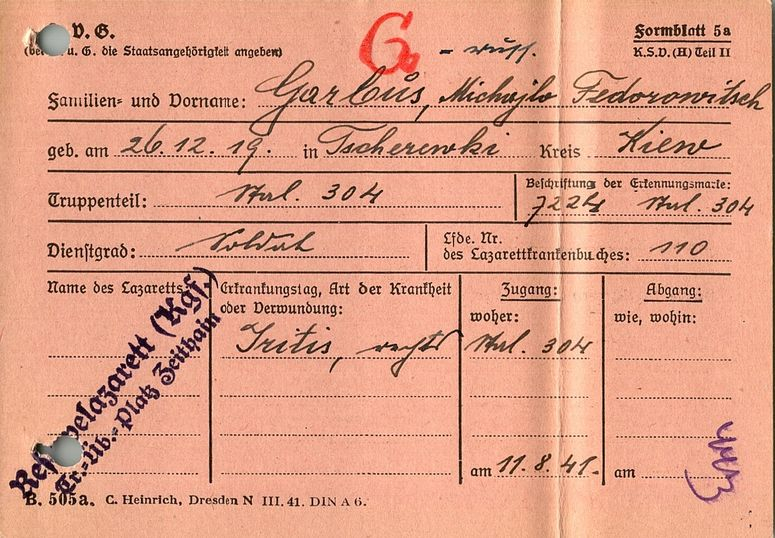 G.
V. G. - russ. Formblatt 5a
u. G. die Staatsangehörigkeit angeben) K.S.V. (H) Teil II
Familien- und Vorname: Garbus, Michajlo Fedorowitsch
geb. am 26.12.19. in Tscherewki Kreis Kiew
Truppenteil: Stal. 304 Beschriftung der Erkennungsmarke:
7224 Stal. 304
Dienstgrad: Soldat Lfde. Nr.
des Lazarettkrankenbuches: 110
Name des Lazaretts: Erkrankungstag, Art der Krankheit Zugang: Abgang:
oder Verwundung: woher: wie, wohin:
Iritis, rechts Stal. 304
Reservelazarett (Kgf.)
Tr.-Üb.-Platz Zeithain
am 11.8.41. am
B. 505a. C. Heinrich, Dresden N III. 41. DIN A 6.